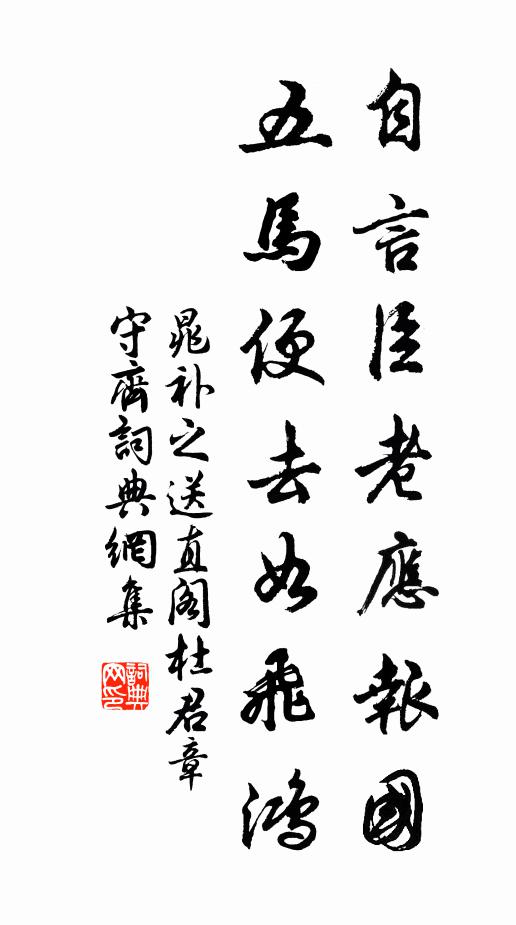 自言臣老應報國
五馬便去如飛鴻
晁補之送直閣杜君章
守齊詞典網集
詞典
网印